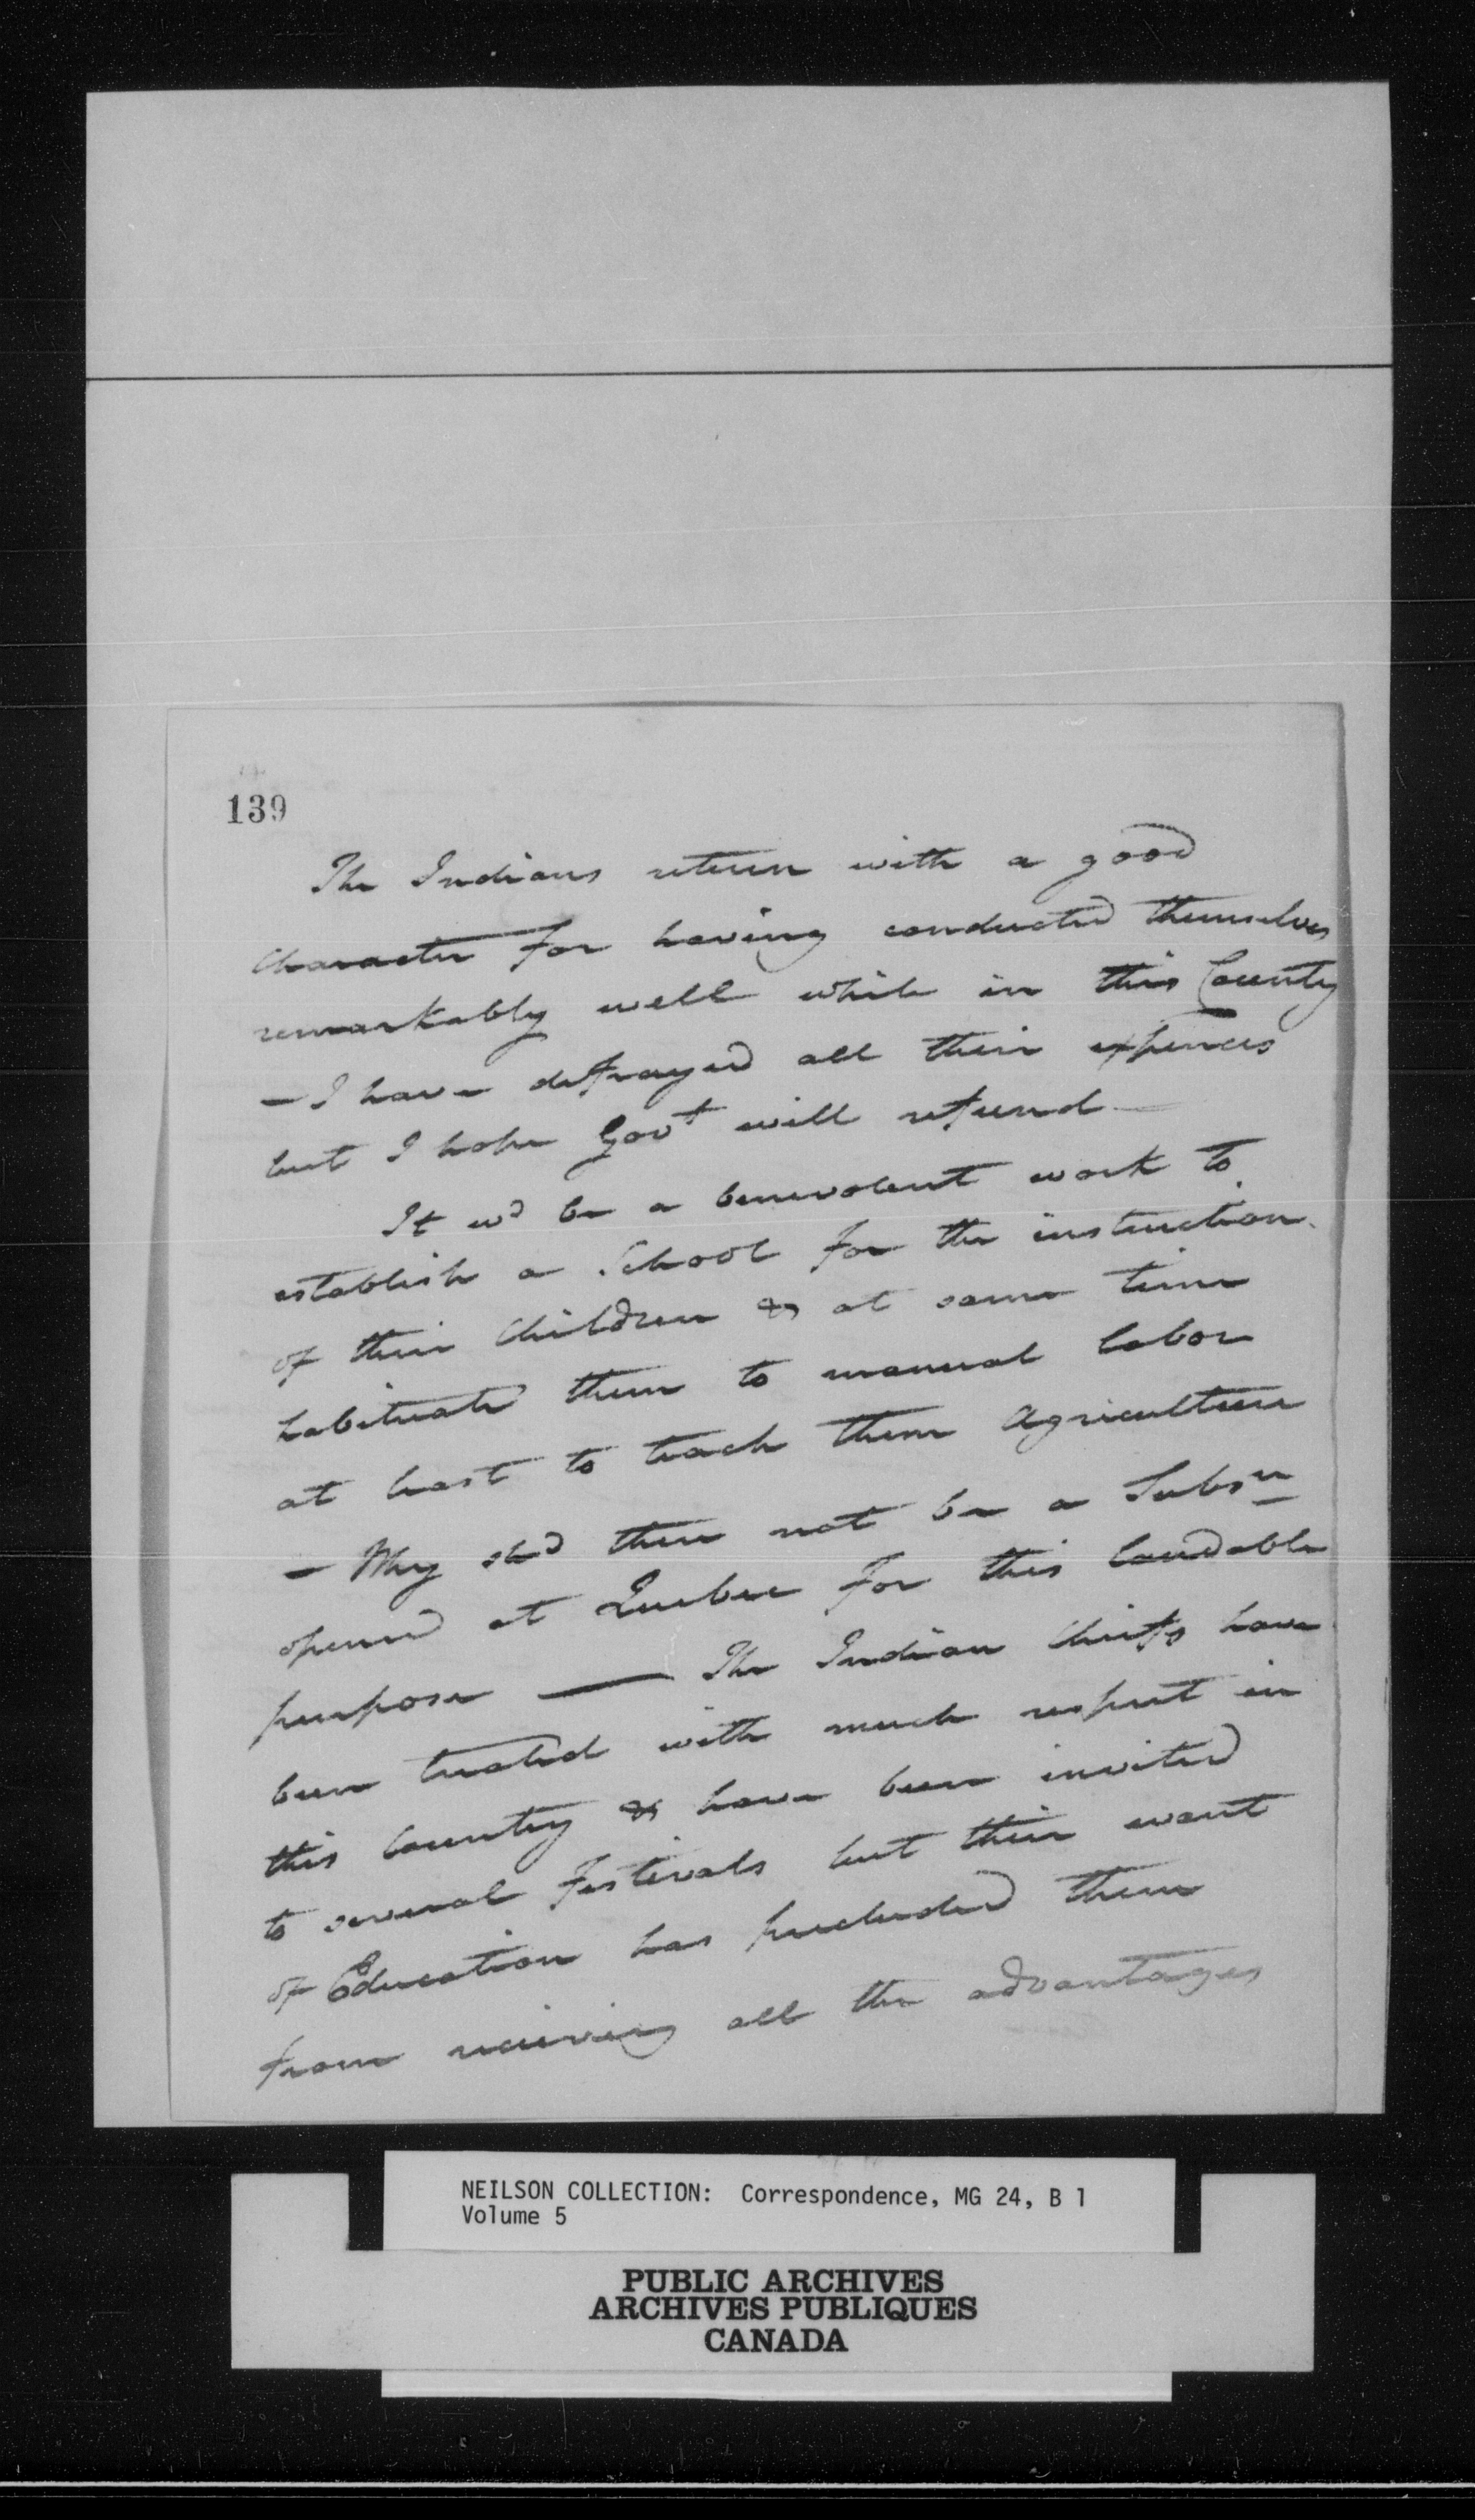 139
The Indians return with a good
Character for having conducted themselves
remarkably well while in this Country
- I have defrayed all their expences
but I hope Govt will refund -
It wd be a benevolent work to
establish a School for the instruction
of their Children & at same time
habituate them to manual labor
at least to teach them Agriculture
- Why shd there not be a Subsn
opened at Quebec for this laudable
purpose — The Indian Chiefs have
been treated with much respect in
this Country & have been invited
to several Festivals but their want
of Education has precluded them
from receiving all the advantages
NEILSON COLLECTION: Correspondence, MG 24, B 1
Volume 5
PUBLIC ARCHIVES
ARCHIVES PUBLIQUES
CANADA